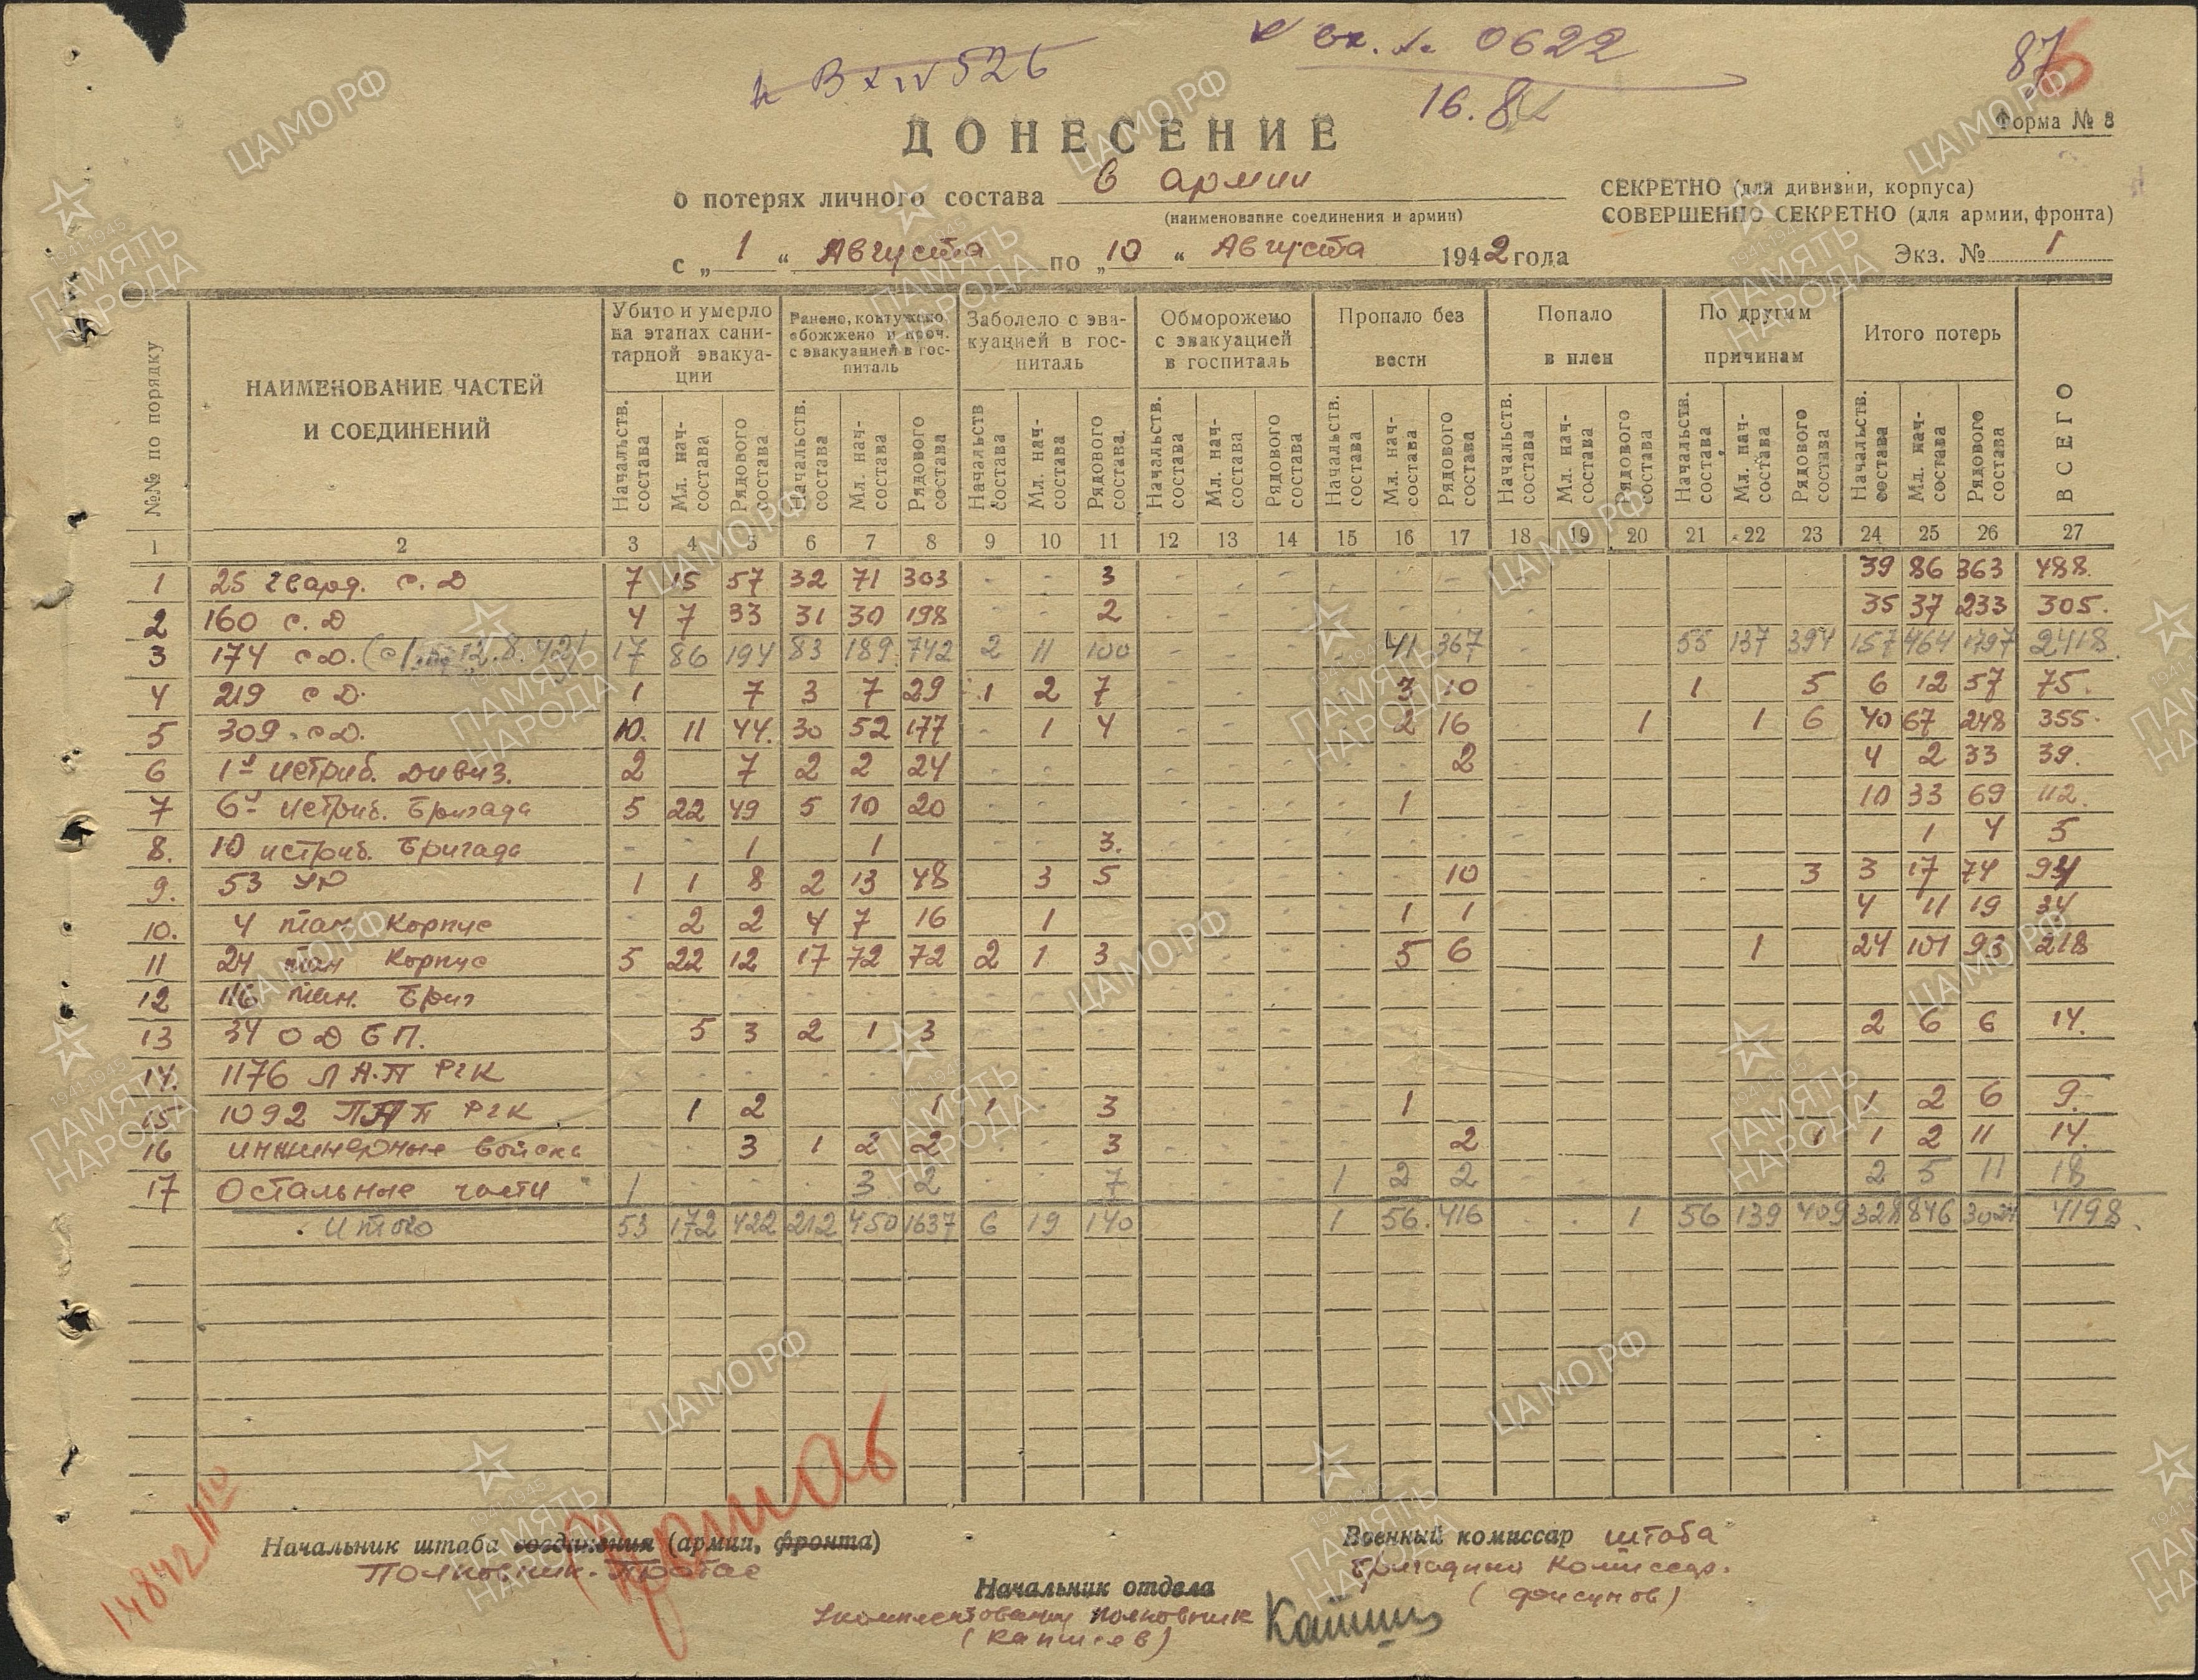 Вх № 526
вх. № 0622
16.8
87
6
ДОНЕСЕНИЕ
Форма № 8
о потерях личного состава 6 армии
(наименование соединения и армии)
СЕКРЕТНО (для дивизии, корпуса)
СОВЕРШЕННО СЕКРЕТНО (для армии, фронта)
с „ 1 “ Августа по „ 10 “ Августа 1942 года
Экз. № 1
№№ по порядку | НАИМЕНОВАНИЕ ЧАСТЕЙ И СОЕДИНЕНИЙ | Убито и умерло на этапах санитарной эвакуации | Ранено, контужено, обожжено и проч. с эвакуацией в госпиталь | Заболело с эвакуацией в госпиталь | Обморожено с эвакуацией в госпиталь | Пропало без вести | Попало в плен | По другим причинам | Итого потерь | ВСЕГО
Начальств. состава | Мл. нач-состава | Рядового состава | Начальств. состава | Мл. нач-состава | Рядового состава | Начальств состава | Мл. нач-состава | Рядового состава. | Начальств. состава | Мл. нач-состава | Рядового состава | Начальств. состава | Мл. нач-состава | Рядового состава | Начальств. состава | Мл. нач-состава | Рядового состава | Начальств. состава | Мл. нач-состава | Рядового состава | Начальств. состава | Мл. нач-состава | Рядового состава
1 2 3 4 5 6 7 8 9 10 11 12 13 14 15 16 17 18 19 20 21 22 23 24 25 26 27
1 25 гвард. с. Д 7 15 57 32 71 303 - - 3 39 86 363 488
2 160 с. Д 4 7 33 31 30 198 2 35 37 233 305.
3 174 сД. 12.8.42) 17 86 194 83 189 742 2 11 100 41 367 55 137 394 157 464 1797 2418
4 219 сД. 1 7 3 7 29 1 2 7 3 10 1 5 6 12 57 75.
5 309 сД. 10. 11 44. 30 52 177 1 4 2 16 1 1 6 40 67 248 355.
6 1я истриб. дивиз. 2 7 2 2 24 2 4 2 33 39.
7 6я истриб. Бригада 5 22 49 5 10 20 1 10 33 69 112.
8. 10 истриб. Бригада 1 1 3. 1 4 5
9. 53 УР 1 1 8 2 13 48 3 5 10 3 3 17 74 94
10. 4 тан Корпус 2 2 4 7 16 1 1 1 4 11 19 34
11 24 тан Корпус 5 22 12 17 72 72 2 1 3 5 6 1 24 101 93 218
12 116 тан. Бриг
13 34 ОДБП. 5 3 2 1 3 2 6 6 14.
14. 1176 ЛАП РГК
15 1092 ПАП РГК 1 2 1 1 3 1 1 2 6 9.
16 инжинерные войска 3 1 2 2 3 2 1 1 2 11 14.
17 Остальные части 1 3 2 7 1 2 2 2 5 11 18
Итого 53 172 422 212 450 1637 6 19 140 1 56 416 1 56 139 409 328 846 3024 4198
Начальник штаба соединения (армии, фронта)
Полковник
Военный комиссар штаба
Бригадный Комиссар.
(Фисунов)
Начальник отдела
укомплектования полковник
ЦАМО РФ
1941-1945
ПАМЯТЬ НАРОДА